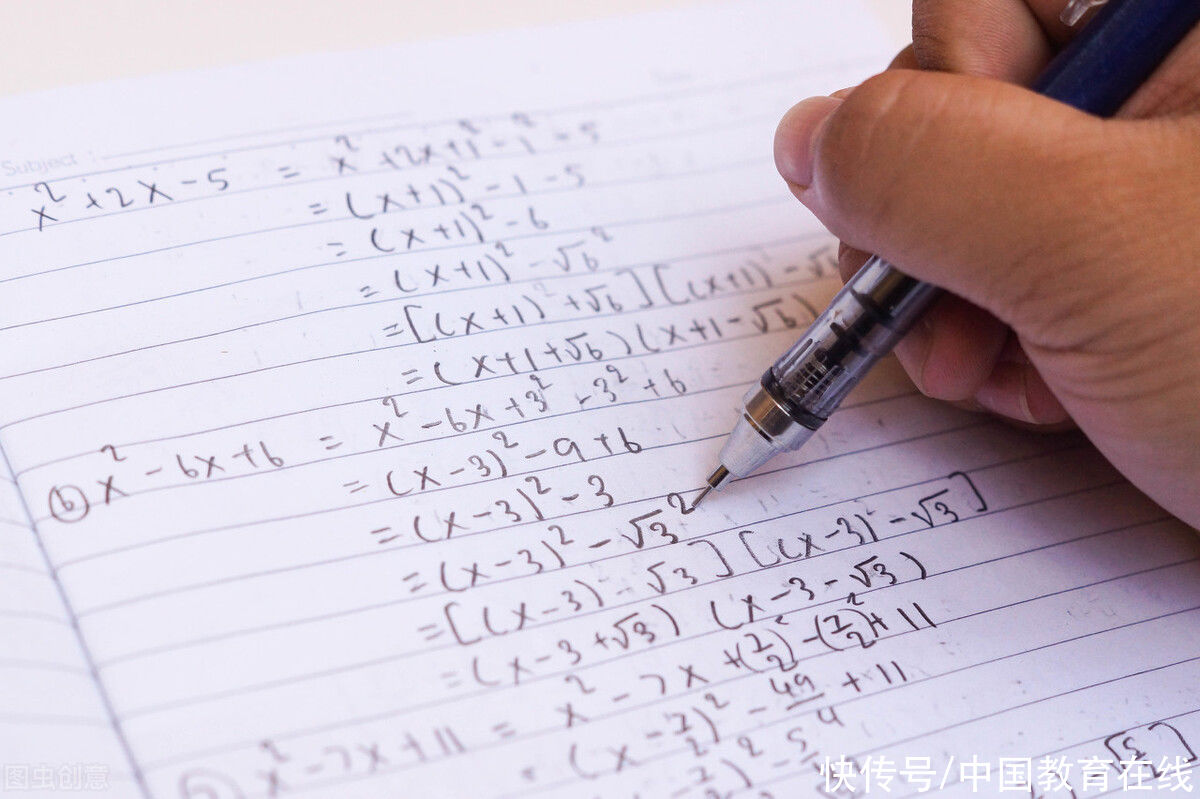 Subject :
x² + 2x - 5 = x² + 2x + 1² - 1² - 5
= (x+1)² - 1 - 5
= (x+1)² - 6
= (x+1)² - √6²
=[(x+1)² + √6][(x+1) - √6
= (x+1+√6)(x+1-√6)
ⓑ x² - 6x + 6 = x² - 6x + 3² - 3² + 6
= (x-3)² - 9 + 6
= (x-3)² - 3
= (x-3)² - √3²
=[(x-3) - √3][(x-3)² - √3]
= (x-3+√3) (x-3-√3)
x² - 7x + 11 = x² - 7x + (7/2)² - (7/2)² + 11
= (x - 7/2)² - 49/4 + 11
图虫创意
快传号/中国教育在线